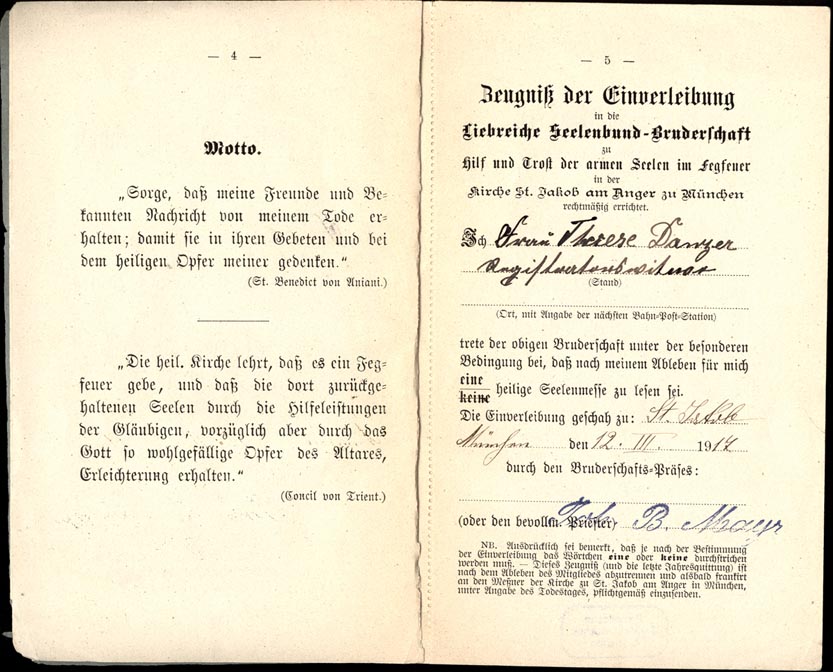 — 4 —
Motto.
„Sorge, daß meine Freunde und Be-
kannten Nachricht von meinem Tode er-
halten; damit sie in ihren Gebeten und bei
dem heiligen Opfer meiner gedenken.“
(St. Benedict von Aniani.)
„Die heil. Kirche lehrt, daß es ein Feg-
feuer gebe, und daß die dort zurückge-
haltenen Seelen durch die Hilfeleistungen
der Gläubigen, vorzüglich aber durch das
Gott so wohlgefällige Opfer des Altares,
Erleichterung erhalten.“
(Concil von Trient.)
— 5 —
Zeugniß der Einverleibung
in die
Liebreiche Seelenbund-Bruderschaft
zu
Hilf und Trost der armen Seelen im Fegfeuer
in der
Kirche St. Jakob am Anger zu München
rechtmäßig errichtet.
Ich Frau Therese Danzer
Registratorswitwe
(Stand)
(Ort, mit Angabe der nächsten Bahn-Post-Station)
trete der obigen Bruderschaft unter der besonderen
Bedingung bei, daß nach meinem Ableben für mich
eine
keine heilige Seelenmesse zu lesen sei.
Die Einverleibung geschah zu: St. Jakob
München den 12. III. 1917
durch den Bruderschafts-Präses:
(oder den bevollm. Priester) Joh. B. Mayr
NB. Ausdrücklich sei bemerkt, daß je nach der Bestimmung
der Einverleibung das Wörtchen eine oder keine durchstrichen
werden muß. — Dieses Zeugniß (und die letzte Jahresquittung) ist
nach dem Ableben des Mitgliedes abzutrennen und alsbald frankirt
an den Meßner der Kirche zu St. Jakob am Anger in München,
unter Angabe des Todestages, pflichtgemäß einzusenden.